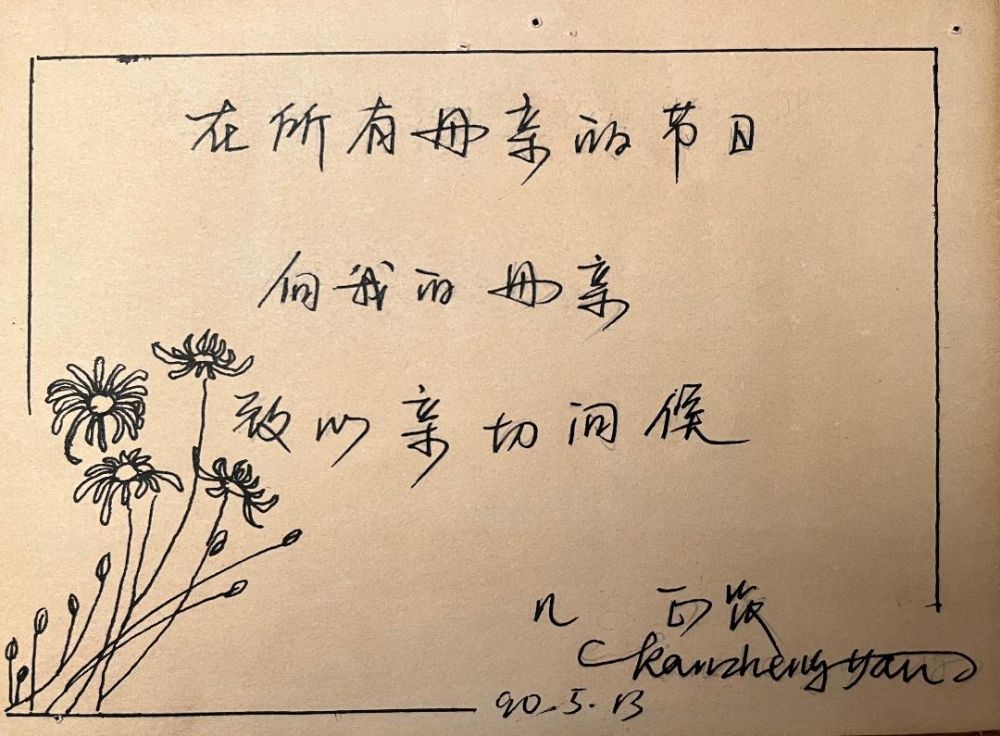 在所有母亲的节日
向我的母亲
致以亲切问候
儿 正
kanzheng yan
90.5.13